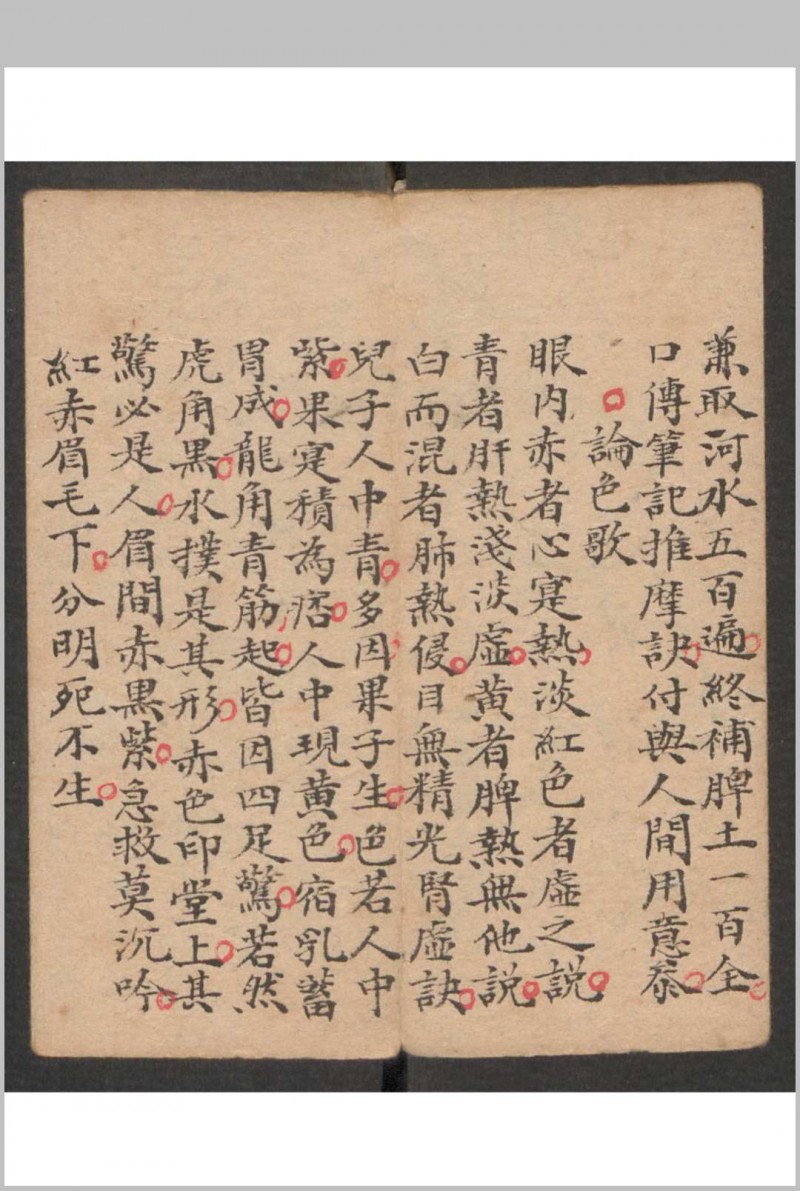 兼取河水五百遍終補脾土一百全
口傳筆記推摩訣付與人間用意叅
論色歌
眼内赤者心寔熱淡紅色者虛之説
青者肝熱淺淡虛黄者脾熱無他説
白而混者肺熱侵目無精光腎虛訣
兒子人中青多因果子生色若人中
紫果寔積為痞人中現黄色宿乳蓄
胃成龍角青筋起皆因四足驚若然
虎角黒水撲是其形赤色印堂上其
驚必是人眉間赤黒紫急救莫沉吟
紅赤眉毛下分明死不生